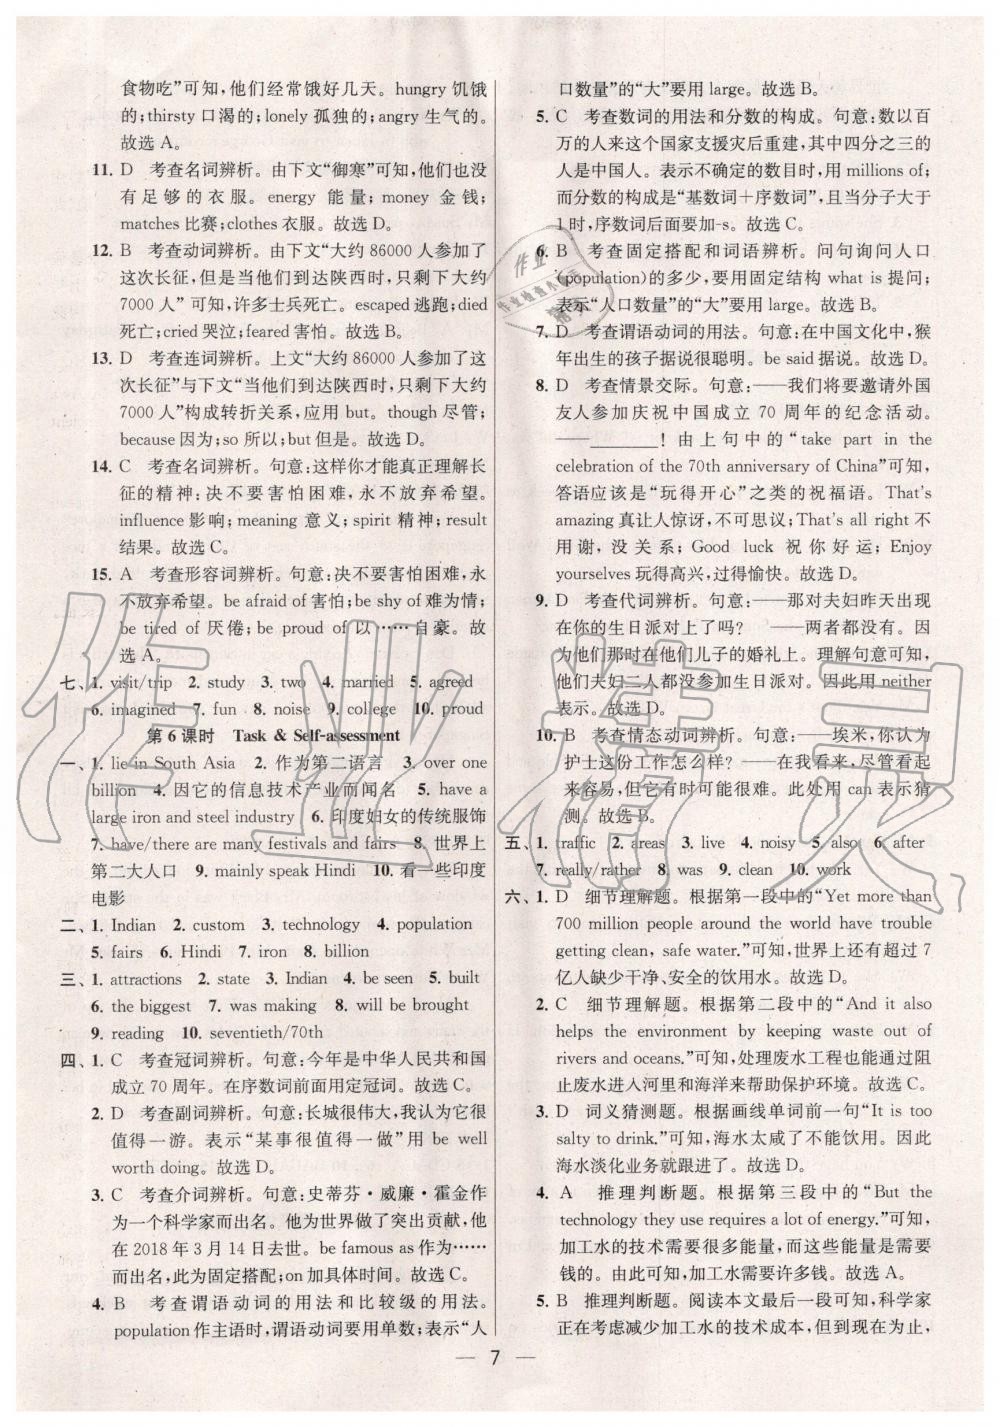 食物吃”可知，他们经常饿好几天。hungry 饥饿
的；thirsty 口渴的；lonely 孤独的；angry 生气的。
故选 A。
11. D　考查名词辨析。由下文“御寒”可知，他们也没
有足够的衣服。energy 能量；money 金钱；
matches 比赛；clothes 衣服。故选 D。
12. B　考查动词辨析。由下文“大约 86000 人参加了
这次长征，但当他们到达陕西时，只剩下大约
7000 人” 可知，许多士兵死亡。escaped 逃跑；died
死亡；cried 哭泣；feared 害怕。故选 B。
13. D　考查连词辨析。上文“大约 86000 人参加了这
次长征”与下文“当他们到达陕西时，只剩下大约
7000 人”构成转折关系，应用 but。though 尽管；
because 因为；so 所以；but 但是。故选 D。
14. C　考查名词辨析。句意：这样你才能真正理解长
征的精神：决不要害怕困难，永不放弃希望。
influence 影响；meaning 意义；spirit 精神；result
结果。故选 C。
15. A　考查形容词辨析。句意：决不要害怕困难，永
不放弃希望。be afraid of 害怕；be shy of 难为情；
be tired of 厌倦；be proud of 以……自豪。故
选 A。
七、1. visit/trip　2. study　3. two　4. married　5. agreed
6. imagined　7. fun　8. noise　9. college　10. proud
第 6 课时　Task & Self-assessment
一、1. lie in South Asia　2. 作为第二语言　3. over one
billion　4. 因它的信息技术产业而闻名　5. have a
large iron and steel industry　6. 印度妇女的传统服饰
7. have/there are many festivals and fairs　8. 世界上
第二大人口　9. mainly speak Hindi　10. 看一些印度
电影
二、1. Indian　2. custom　3. technology　4. population
5. fairs　6. Hindi　7. iron　8. billion
三、1. attractions　2. state　3. Indian　4. be seen　5. built
6. the biggest　7. was making　8. will be brought
9. reading　10. seventieth/70th
四、1. C　考查冠词辨析。句意：今年是中华人民共和国
成立 70 周年。在序数词前面用定冠词。故选 C。
2. D　考查副词辨析。句意：长城很伟大，我认为它很
值得一游。表示“某事很值得一做”用 be well
worth doing。故选 D。
3. C　考查介词辨析。句意：史蒂芬·威廉·霍金作
为一个科学家而出名。他为世界做了突出贡献，他
在 2018 年 3 月 14 日去世。be famous as 作为……
而出名，此为固定搭配；on 加具体时间。故选 C。
4. B　考查谓语动词的用法和比较级的用法。
population 作主语时，谓语动词要用单数；表示“人
口数量”的“大”要用 large。故选 B。
5. C　考查数词的用法和分数的构成。句意：数以百
万的人来这个国家支援灾后重建，其中四分之三的
人是中国人。表示不确定的数目时，用 millions of；
而分数的构成是“基数词＋序数词”，且当分子大于
1 时，序数词后面要加-s。故选 C。
6. B　考查固定搭配和词语辨析。问句询问人口
(population)的多少，要用固定结构 what is 提问；
表示“人口数量”的“大”要用 large。故选 B。
7. D　考查谓语动词的用法。句意：在中国文化中，猴
年出生的孩子据说很聪明。be said 据说。故选 D。
8. D　考查情景交际。句意：——我们将要邀请外国
友人参加庆祝中国成立 70 周年的纪念活动。
——________！由上句中的“take part in the
celebration of the 70th anniversary of China”可知，
答语应该是“玩得开心”之类的祝福语。That's
amazing 真让人惊讶，不可思议；That's all right 不
用谢，没关系；Good luck 祝你好运；Enjoy
yourselves 玩得高兴，过得愉快。故选 D。
9. D　考查代词辨析。句意：——那对夫妇昨天出现
在你的生日派对上了吗？——两者都没有。因
为他们那时在他们儿子的婚礼上。理解句意可知，
他们夫妇二人都没参加生日派对。因此用 neither
表示。故选 D。
10. B　考查情态动词辨析。句意：——埃米，你认为
护士这份工作怎么样？——在我看来，尽管看起
来容易，但它有时可能很难。此处用 can 表示猜
测。故选 B。
五、1. traffic　2. areas　3. live　4. noisy　5. also　6. after
7. really/rather　8. was　9. clean　10. work
六、1. D　细节理解题。根据第一段中的“Yet more than
700 million people around the world have trouble
getting clean, safe water.”可知，世界上还有超过 7
亿人缺少干净、安全的饮用水。故选 D。
2. C　细节理解题。根据第二段中的“And it also
helps the environment by keeping waste out of
rivers and oceans.”可知，处理废水工程也能通过阻
止废水进入河里和海洋来帮助保护环境。故选 C。
3. D　词义猜测题。根据画线单词前一句“It is too
salty to drink.”可知，海水太咸了不能饮用。因此
海水淡化业务就跟进了。故选 D。
4. A　推理判断题。根据第三段中的“But the
technology they use requires a lot of energy.”可知，
加工水的技术需要很多能量，而这些能量是需要花
钱的。由此可知，加工水需要许多钱。故选 A。
5. B　推理判断题。阅读本文最后一段可知，科学家
正在考虑减少加工水的技术成本，但到现在为止，
— 7 —
作业精灵